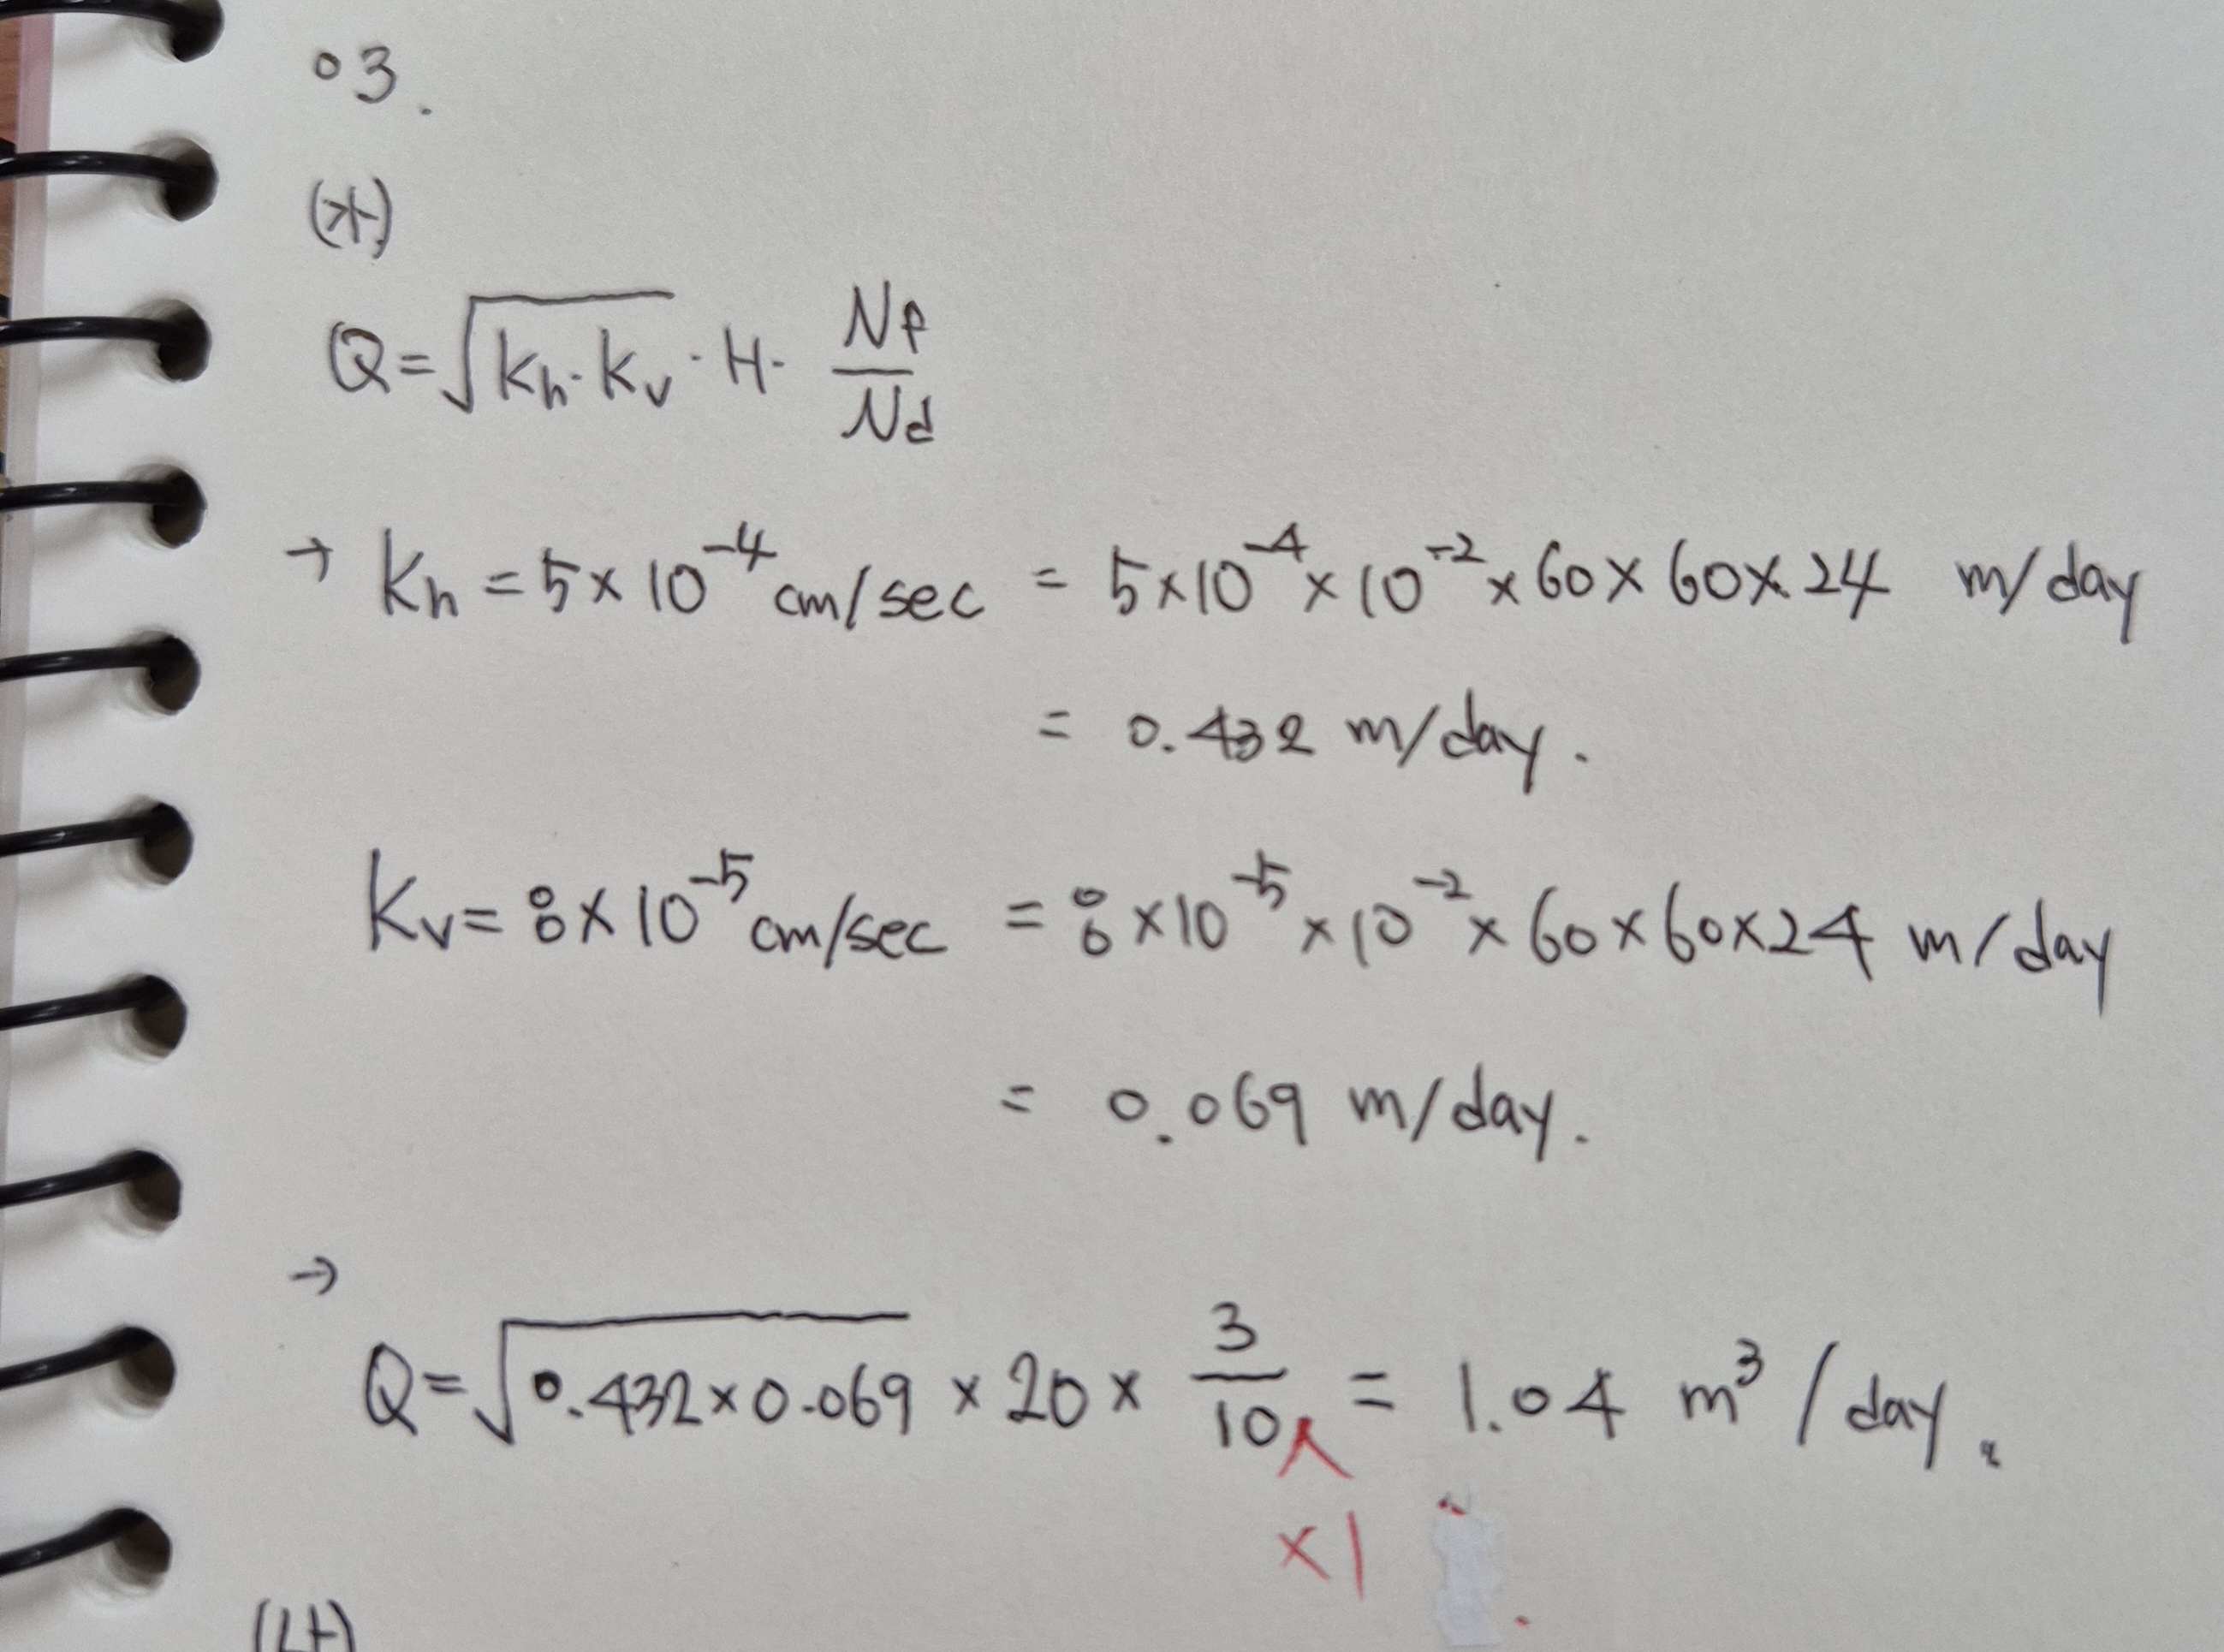 03.
(가)
Q = √(Kh · Kv) · H · Nf/Nd
→ Kh = 5×10⁻⁴ cm/sec = 5×10⁻⁴×10⁻²×60×60×24 m/day
= 0.432 m/day.
Kv = 8×10⁻⁵ cm/sec = 8×10⁻⁵×10⁻²×60×60×24 m/day
= 0.069 m/day.
→
Q = √(0.432×0.069) × 20 × 3/10 = 1.04 m³/day.
×1
(나)